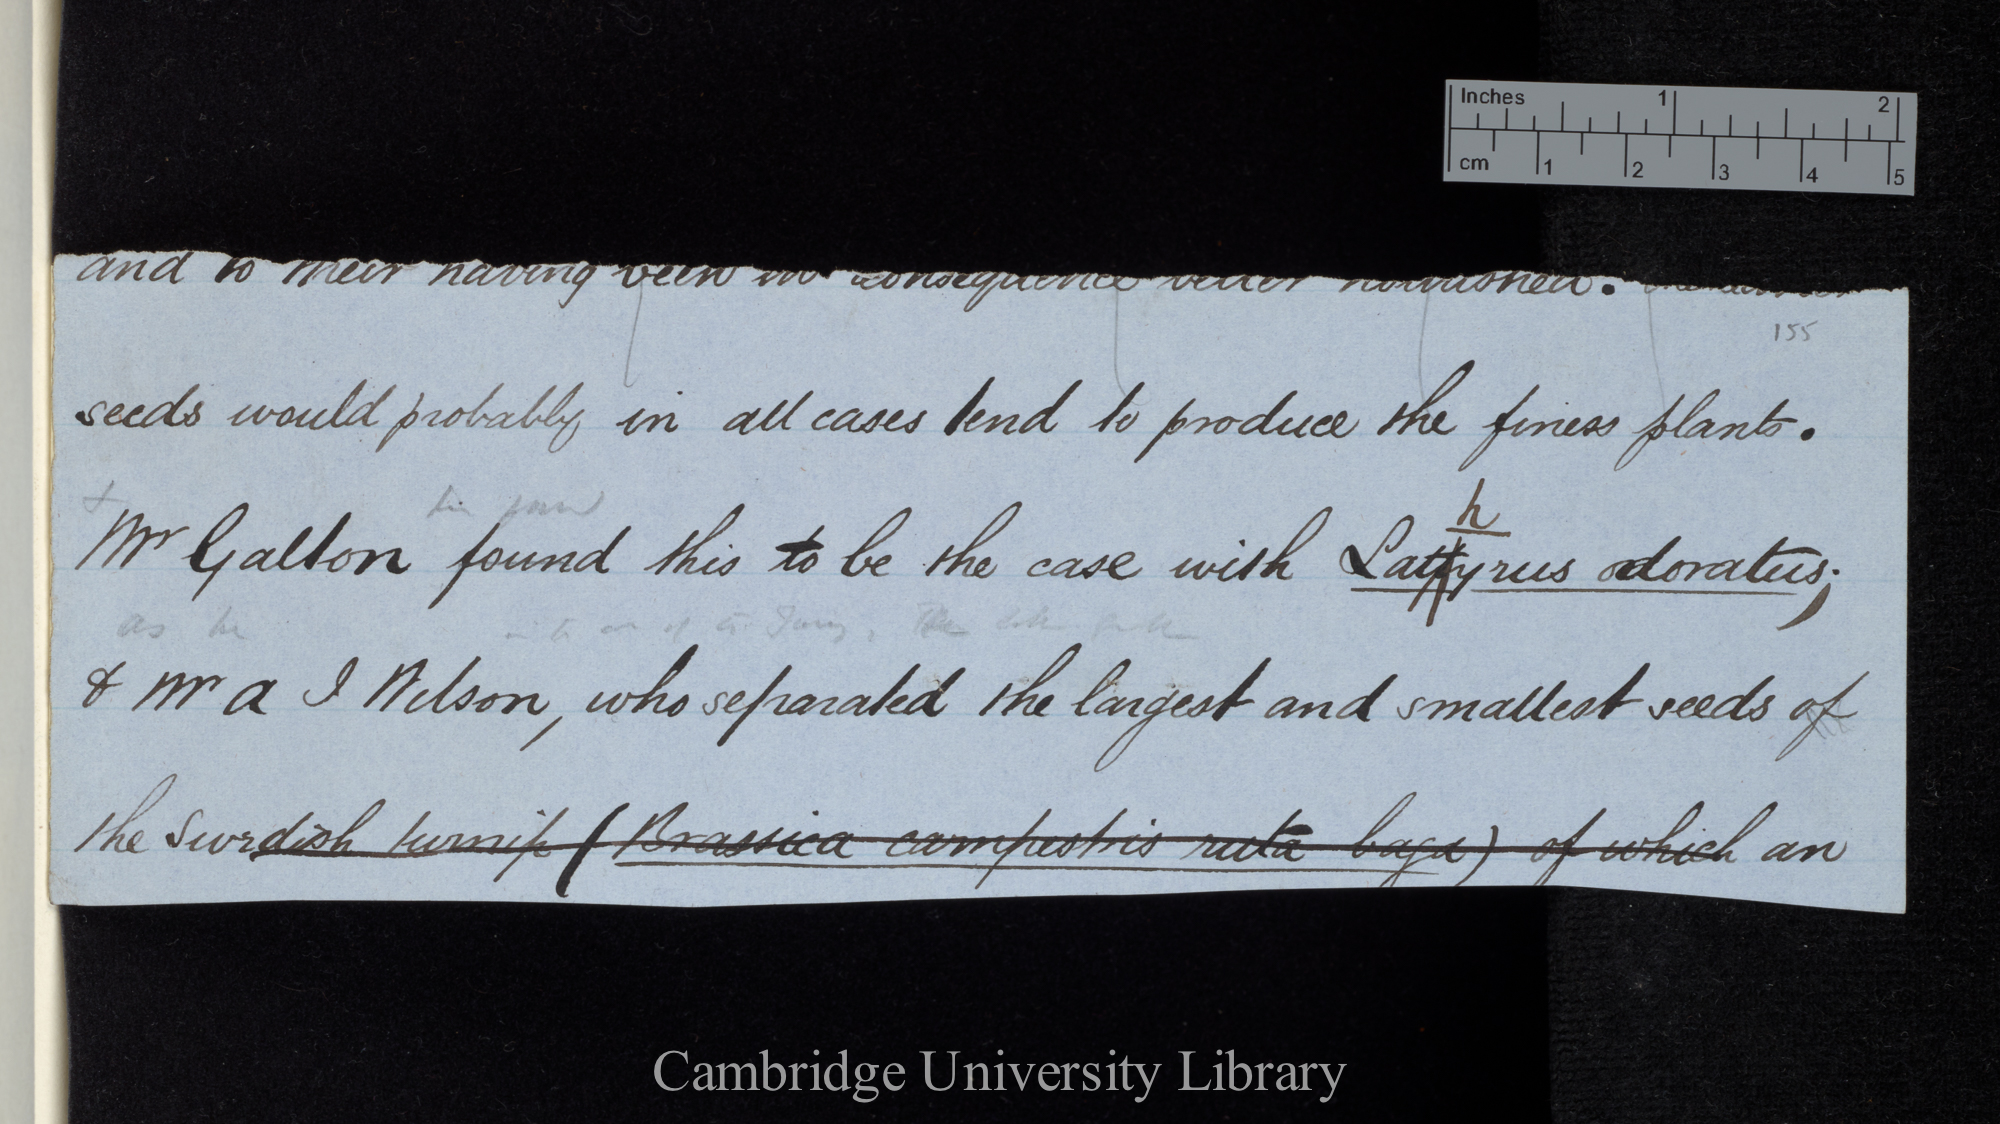 Inches 1 2
cm 1 2 3 4 5
and to their having been in consequence better nourished.
155
seeds would probably in all cases tend to produce the finess plants.
h
Mr Galton found this to be the case with Lattyrus odoratus;
as he
& Mr A I Wilson, who separated the largest and smallest seeds of
the Swedish turnip (Brassica campestris ruta baga) of which an
Cambridge University Library